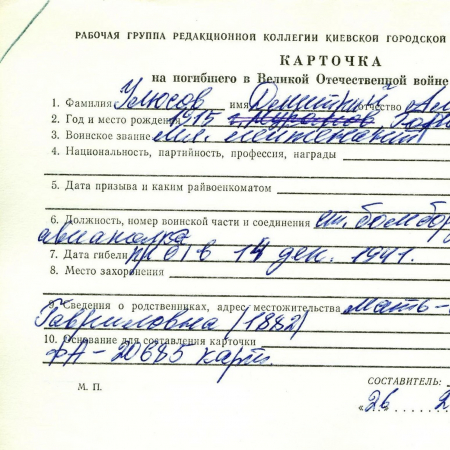 РАБОЧАЯ ГРУППА РЕДАКЦИОННОЙ КОЛЛЕГИИ КИЕВСКОЙ ГОРОДСКОЙ
КАРТОЧКА
на погибшего в Великой Отечественной войне
1. Фамилия Улюсов имя Дмитрий отчество
2. Год и место рождения 1915 г. Муромов,
3. Воинское звание мл. лейтенант
4. Национальность, партийность, профессия, награды
5. Дата призыва и каким райвоенкоматом
6. Должность, номер воинской части и соединения
авиаполка
7. Дата гибели 14 дек. 1941.
8. Место захоронения
9. Сведения о родственниках, адрес местожительства мать-
Гавриловна (1882)
10. Основание для составления карточки
ФА-20685 карт.
М. П.
СОСТАВИТЕЛЬ:
«26